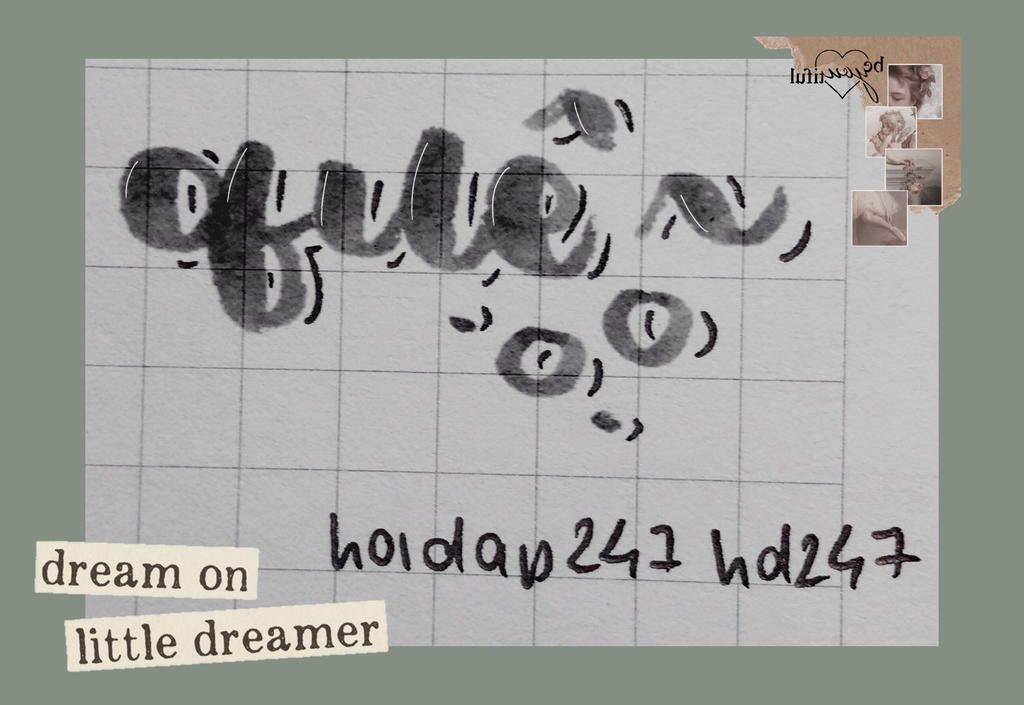 beyoutiful
hoidap247 hd247
dream on
little dreamer